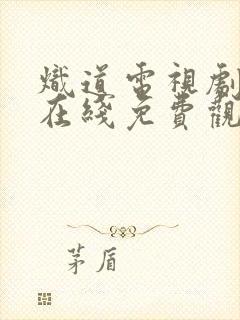 熾道電視劇
在綫免費觀
茅盾